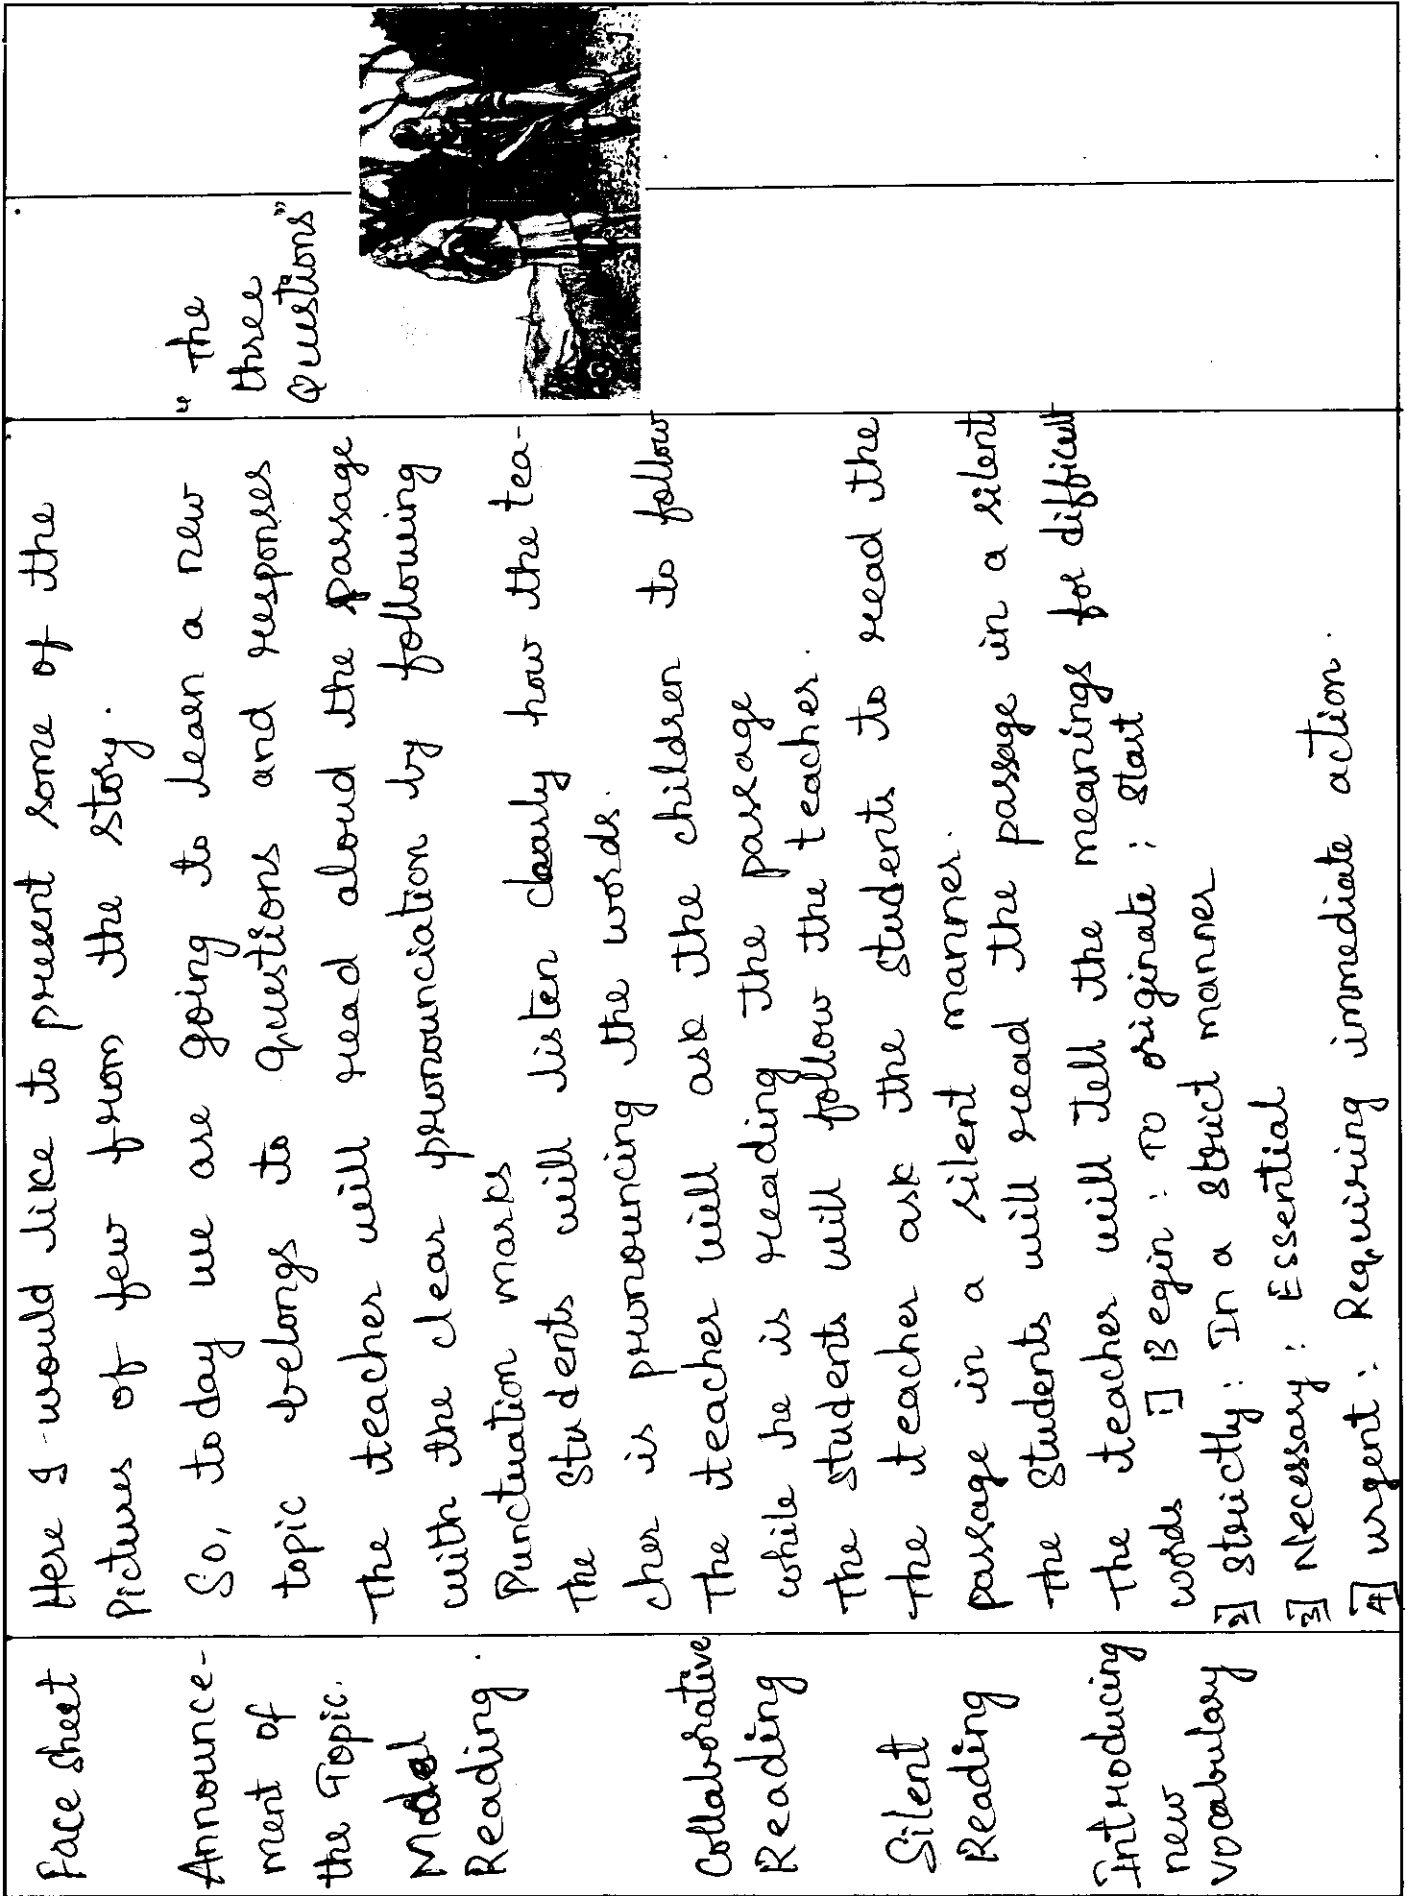 Face Sheet
Here I would like to present some of the
Pictures of few from the story.
Announce-
ment of
the Topic.
So, today we are going to learn a new
topic belongs to questions and responses
" The
three
Questions"
Model
Reading.
The teacher will read aloud the passage
with the clear pronounciation by following
Punctuation marks
The Students will listen clearly how the tea-
cher is pronouncing the words.
Collaborative
Reading
The teacher will ask the children to follow
while he is reading the passage
The students will follow the teacher.
Silent
Reading
The teacher ask the students to read the
passage in a silent manner.
The Students will read the passage in a silent
Introducing
new
vocabulary
The teacher will tell the meanings for difficult
words 1] Begin : To originate ; Start
2] Strictly : In a strict manner
3] Necessary : Essential
4] urgent : Requiring immediate action.